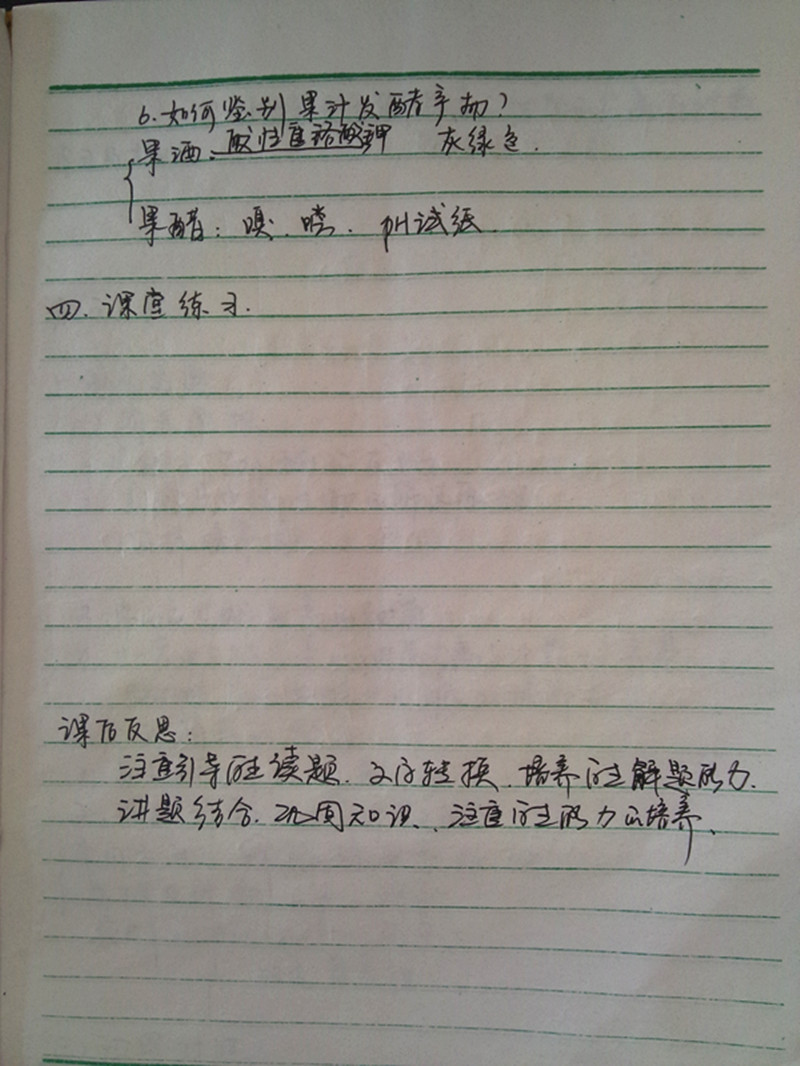 6.如何鉴别果汁发酵产物？
果酒：酸性重铬酸钾 灰绿色.
果醋：嗅、尝、pH试纸.
四.课堂练习.
课后反思：
注意引导学生读题、文字转换、培养学生解题能力.
讲题结合、巩固知识、注意学生能力的培养、